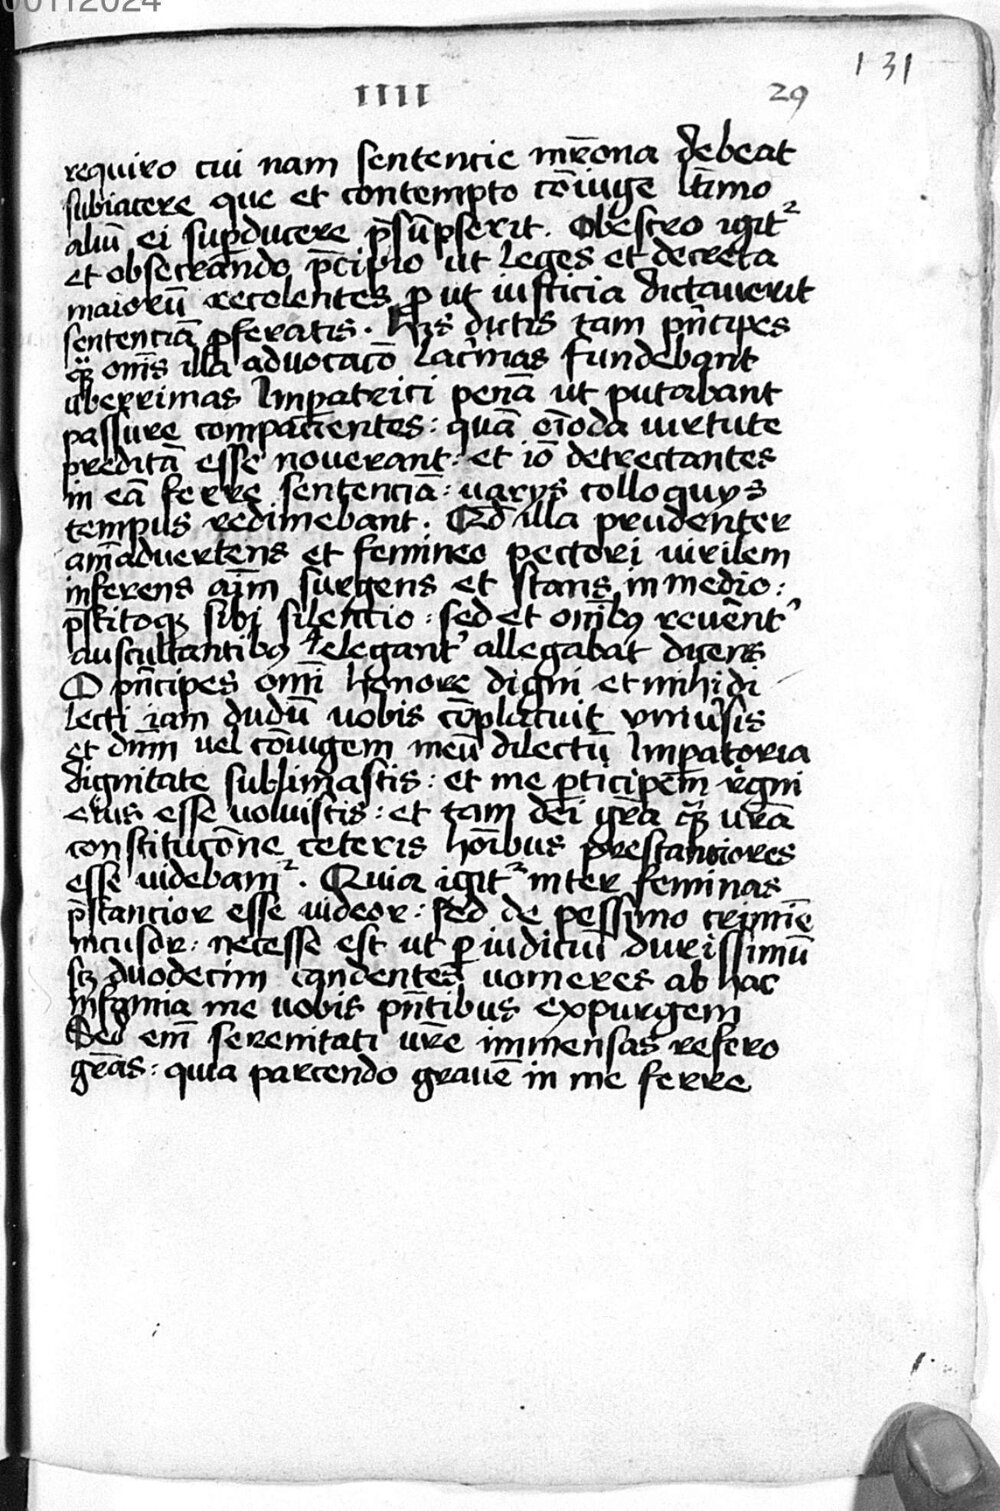 00112024
131
IIII
29
requiro cui nam sentencie mr̄ona debeat
subiacere que et contempto cōiuge ltīmo
aliū ei supducere p̄sūpserit. Obsecro igit²
et obsecrando p̄cipio ut leges et decreta
maiorū recolentes p ut iusticia dictauerit
sentenciā pferatis. Hys dictis tam pn̄cipes
qꝫ om̄s illa aduocacō lacrimas fundebant
uberrimas Impatrici penā ut putabant
passure compacientes: quā eīoda uirtute
preditā esse nouerant: et iō detrectantes
in eā ferre sentenciā: uarys colloquys
tempus redimebant. Qd illa prudenter
am̄aduertens et femineo pectori uirilem
inferens aīm surgens et stans in medio:
p̄stitoqꝫ sibi silencio: sed et om̄ibꝰ reuēnt'
auscultantibꝰ elegant' allegabat dicens
O pn̄cipes om̄i honore digni et mihi di
lecti iam dudū uobis cōplacuit vniu̓sis
et dnm̄ uel cōiugem meū dilectū Impatoria
dignitate sublimastis: et me pticipem regni
eius esse uoluistis: et tam dei gr̄a qꝫ vr̄a
constitucōne ceteris hoībus prestanciores
esse uidebam². Quia igit² inter feminas
p̄stancior esse uideor: sed de pessimo crimīe
incusor: necesse est ut p iudiciū durissimū
scꝫ duodecim candentes uomeres ab hac
infamia me uobis pn̄tibus expurgem
Sed em̄ serenitati ur̄e immensas refero
gr̄as: quia parcendo grauē in me ferre
1.